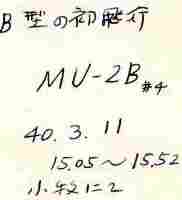 B型の初飛行
MU-2B #4
40.3.11
15.05～15.52
小牧に2